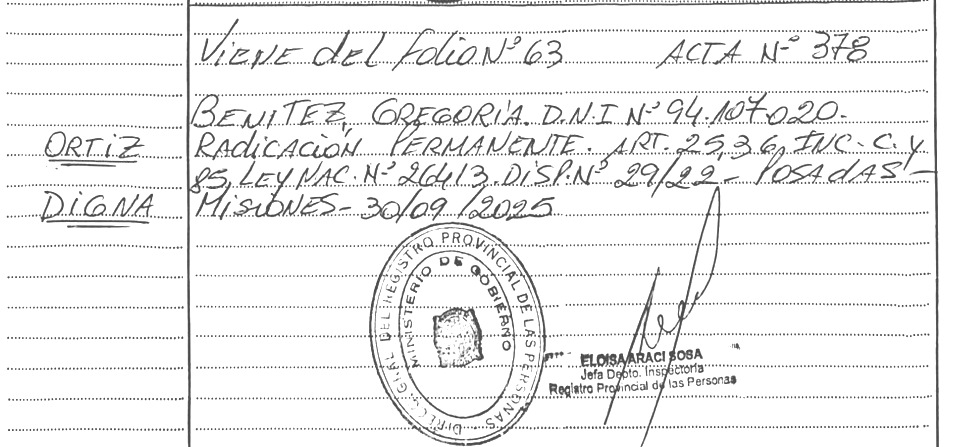 Viene del folio Nº 63 ACTA Nº 378
BENITEZ, GREGORIA. D.N.I Nº 94.107.020.
RADICACIÓN PERMANENTE. ART. 25,36, INC. C. y
85, LEY NAC. Nº 26413. DISP. Nº 29/22 - POSADAS -
MISIONES - 30/09/2025
ORTIZ
DIGNA
DEL REGISTRO PROVINCIAL DE LAS PERSONAS
MINISTERIO DE GOBIERNO
ELOISA ARACI SOSA
Jefa Depto. Inspectoria
Registro Provincial de las Personas